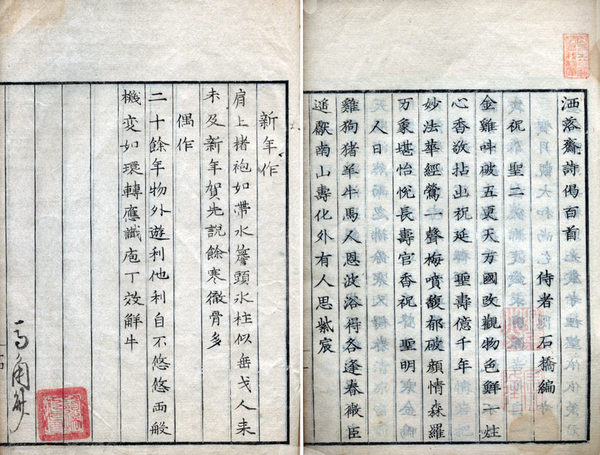 洒落齋詩偈百首
侍者 石橋編
祝 聖二
金雞呌破五更天万國改觀物色鮮一炷
心香欽拈出祝延 聖壽億千年
妙法華經鶯一聲梅噴馥郁破顏情森羅
万象堪怡悅長壽官香祝 聖明
人日
雞狗猪羊牛馬人恩波浴得各逢春微臣
追厭南山壽化外有人思紫宸
新年作
肩上楮袍如帶水簷頭氷柱似無戈人来
未及新年賀先說餘寒徹骨多
偶作
二十餘年物外遊利他利自不悠悠両般
機変如環轉應識庖丁效解牛